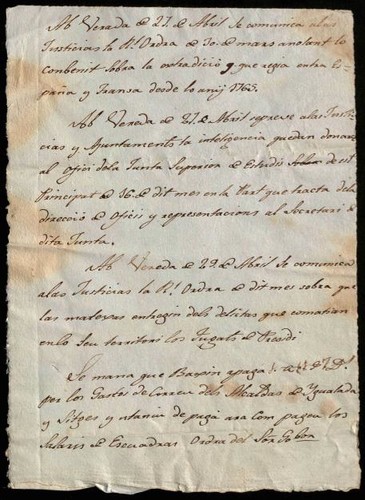 Ab Vereda de 27. de Abril se comunica a las
Justicias la Rl. Ordra de 30. de mars anotant lo
conbenit sobra la extradició que regia entra Es-
paña y Fransa desde lo any 1765.
Ab Vereda de 27. de Abril se preve a las Justi-
cias y Ajuntaments la inteligencia que dan donar
al Ofici de la Junta Superior de Estudis de est
Principat de 16. de dit mes en la Part que tracta de la
direcció de Oficis y representacions al Secretari de
dita Junta.
Ab Vereda de 29. de Abril se comunica
a las Justicias la Rl. Ordra de dit mes sobra que
las matexas entregin dels delictes que comatian
en lo Seu territori los Jugats de Presidi
Se mana que Bar in a paga
per los Gastos de Correu dels Alcaldes de Ygualada
y Sitges y la de pagá ara com pagaba los
Salaris de Escuadras Ordra del Sor. Gobor.